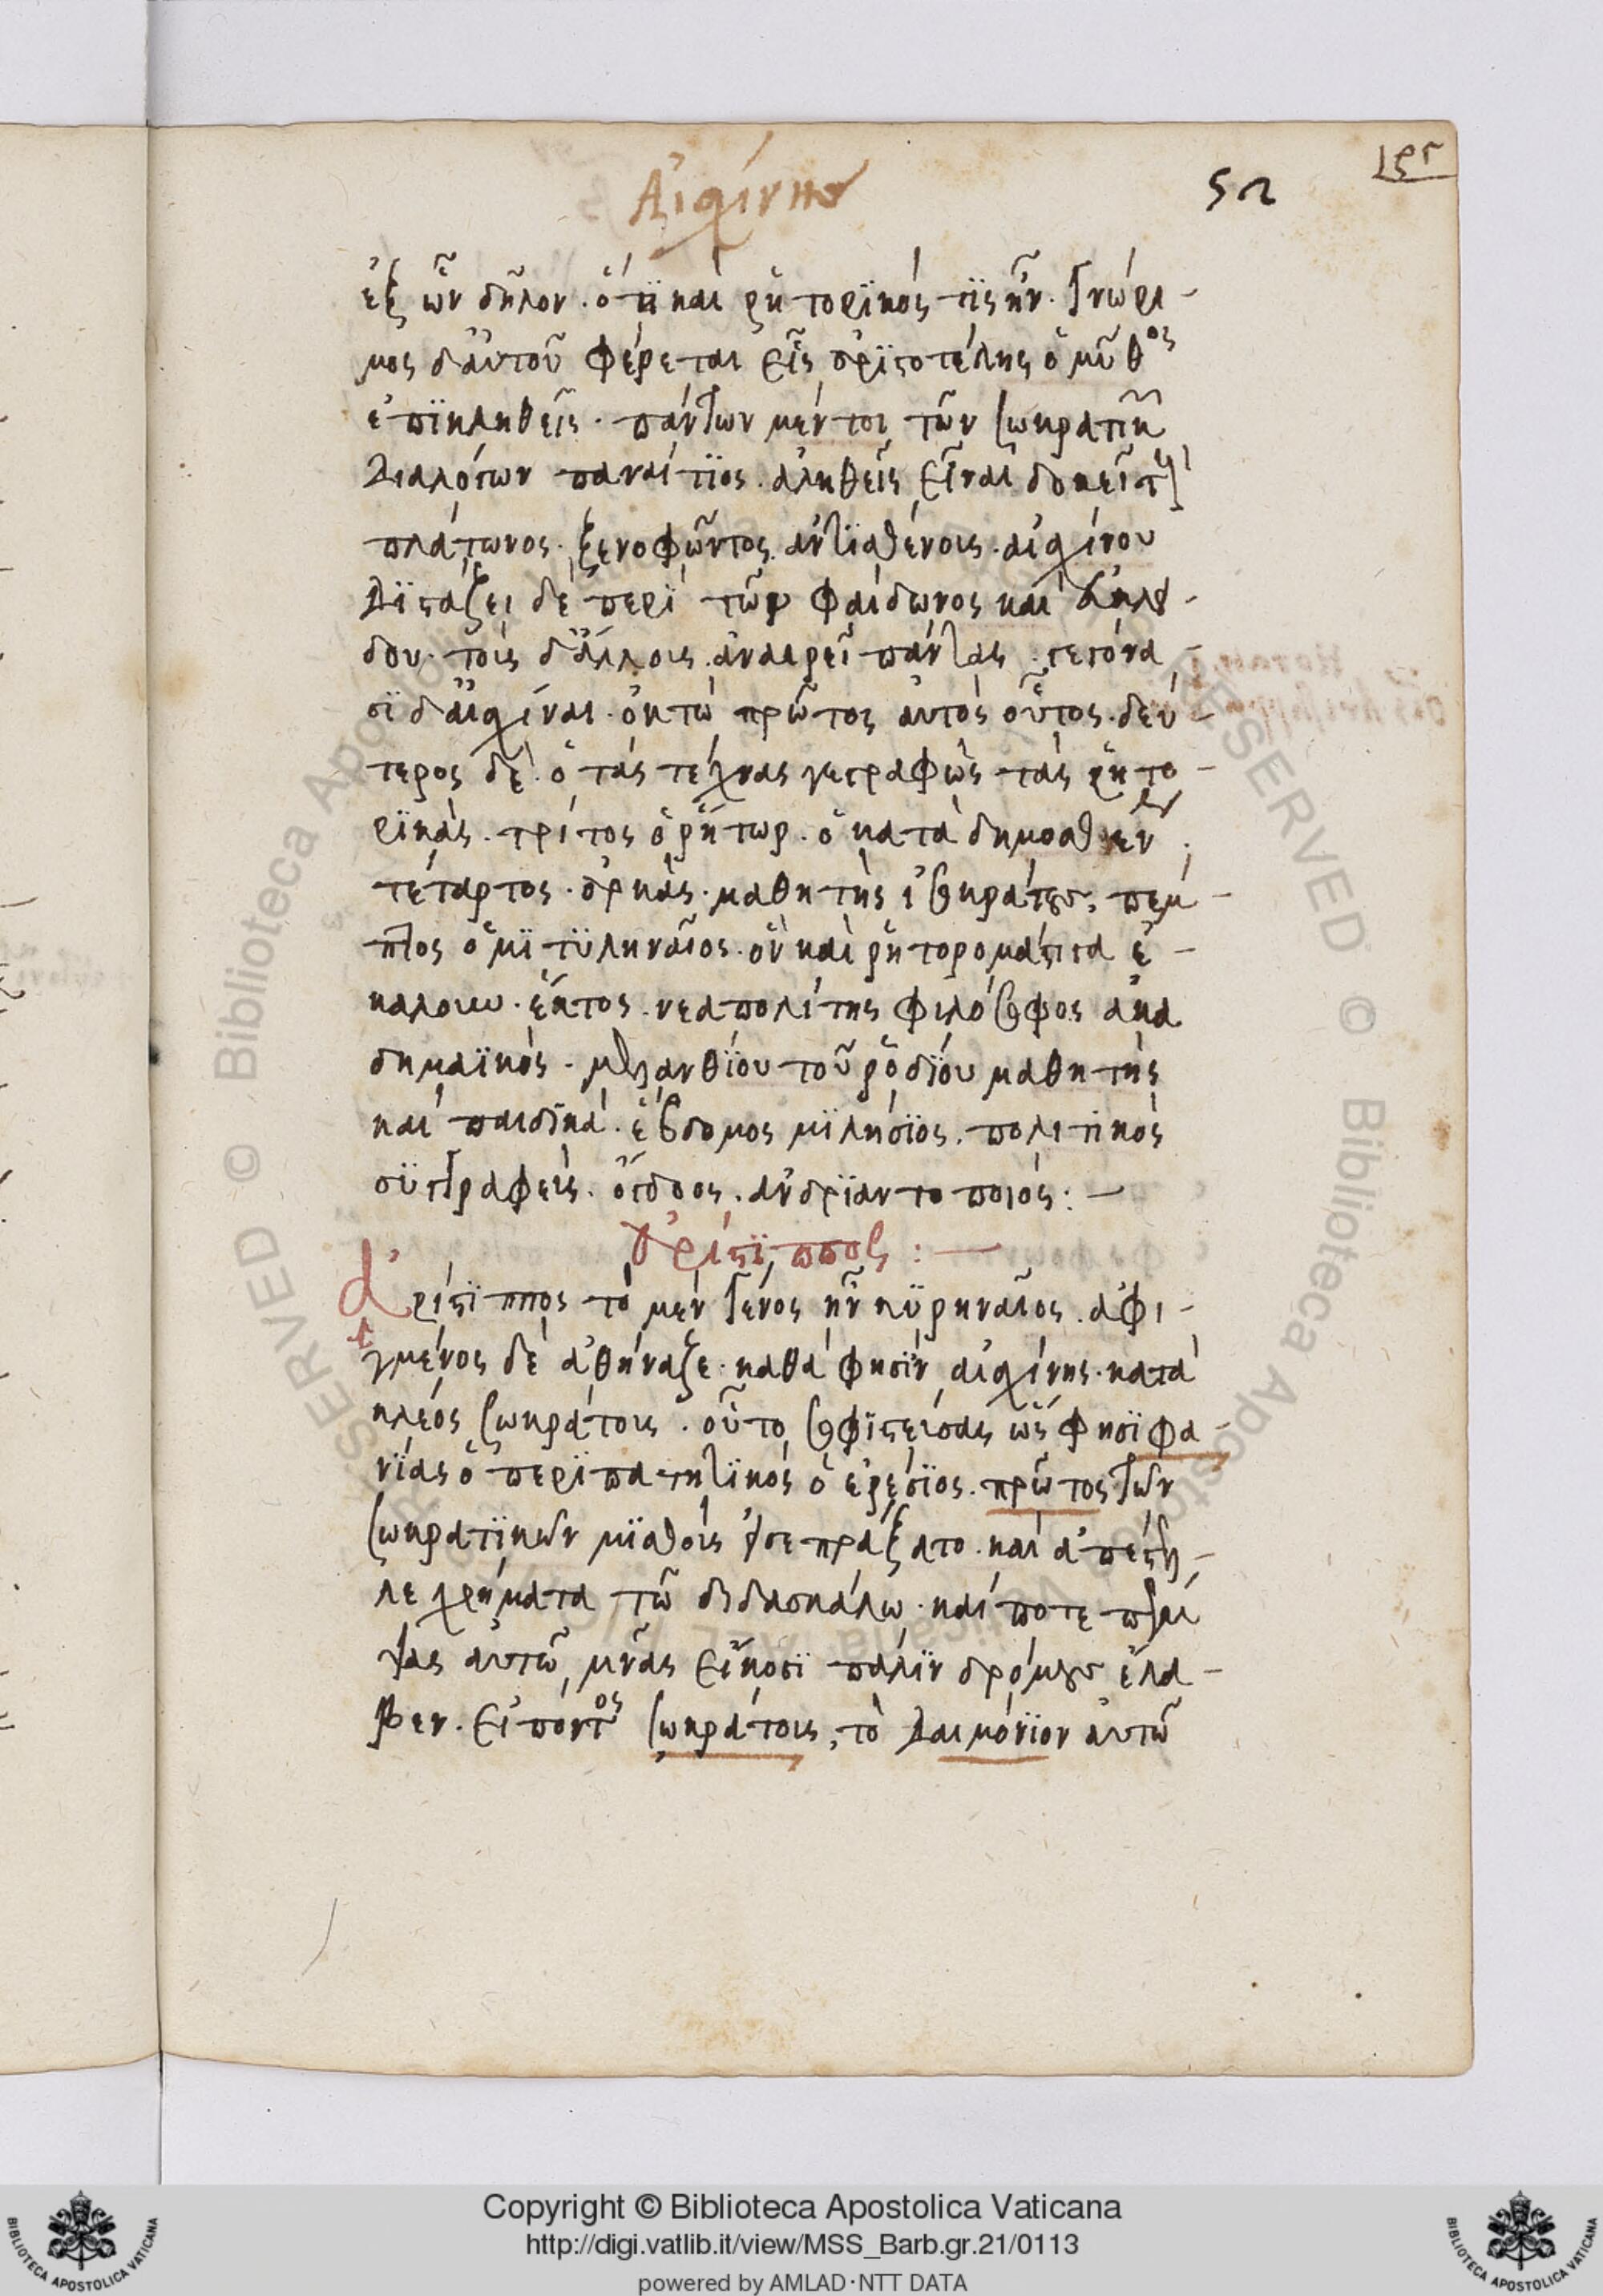 Αἰσχίνησ
52
ἐξ ὧν δῆλον. ὅτϊ καὶ ῥητορϊκός τϊς ἦν. Γνώρι -
μος δ' ἀυτοῦ φέρεται εἷς ἀρϊστοτέλης ὁ μῦθος
ἐπϊκληθεῖς. πάντων μέντοι τῶν σωκρατικῶν
Διαλόγων παναίτϊος. ἀληθεῖς εἶναι δοκεῖ τοὺς
πλάτωνος. ξενοφῶντος. ἀντϊσθένους. αἰσχίνου
Δϊστάζει δὲ περϊ τῶν φαίδωνος καὶ ἐυκλεί -
δου. τοὺς δ' ἄλλους. ἀναιρεῖ πάντας. γεγόνα -
σϊ δ' ἀισχίναι. ὀκτὼ πρῶτος ἀυτὸς οὗτος. δεύ -
τερος δὲ. ὁ τὰς τέχνας γεγραφὼς τὰς ῥητο -
ρϊκὰς. τρίτος ὁ ῥήτωρ. ὁ κατὰ δημοσθένην
τέταρτος. ἀρκὰς. μαθητὴς ἰσοκράτους. πέμ -
πτος ὁ μϊτϋληναῖος. ὃν καὶ ῥητορομάστιγα ἐ -
καλουν. ἕκτος. νεαπολίτης φιλόσοφος ἀκα
δημαϊκὸς. μελανθϊου τοῦ ῥοδϊου μαθητὴς
καὶ παιδϊκά. ἕβδομος μϊλήσϊος. πολιτικὸς
σϋγγραφεὺς. ὄγδοος. ἀνδρϊαντοποιός : —
ἀρίστϊππος : —
ἀρίστϊππος τὸ μὲν Γένος ἦν κϋρηναῖος. ἀφι -
γμένος δὲ ἀθήναζε. καθά φησϊν αἰσχίνης. κατὰ
κλέος σωκράτους. οὗτο σοφϊστεύσας ὥς φησϊ φα -
νϊας ὁ περϊπατητϊκὸς ὁ ἐρέσϊος. πρῶτος τῶν
σωκρατϊκῶν μϊσθοὺς ἐισεπράξατο. καὶ ἀπέστει -
λε χρήματα τῶ διδασκάλω. καί ποτε πέμ
ψας αὐτῶ μνᾶς εἴκοσϊ πάλϊν δρόμους ἔλα -
βεν. εἰπόντος σωκράτους, τὸ Δαιμόνϊον ἀυτῶ
Copyright © Biblioteca Apostolica Vaticana
http://digi.vatlib.it/view/MSS_Barb.gr.21/0113
powered by AMLAD·NTT DATA